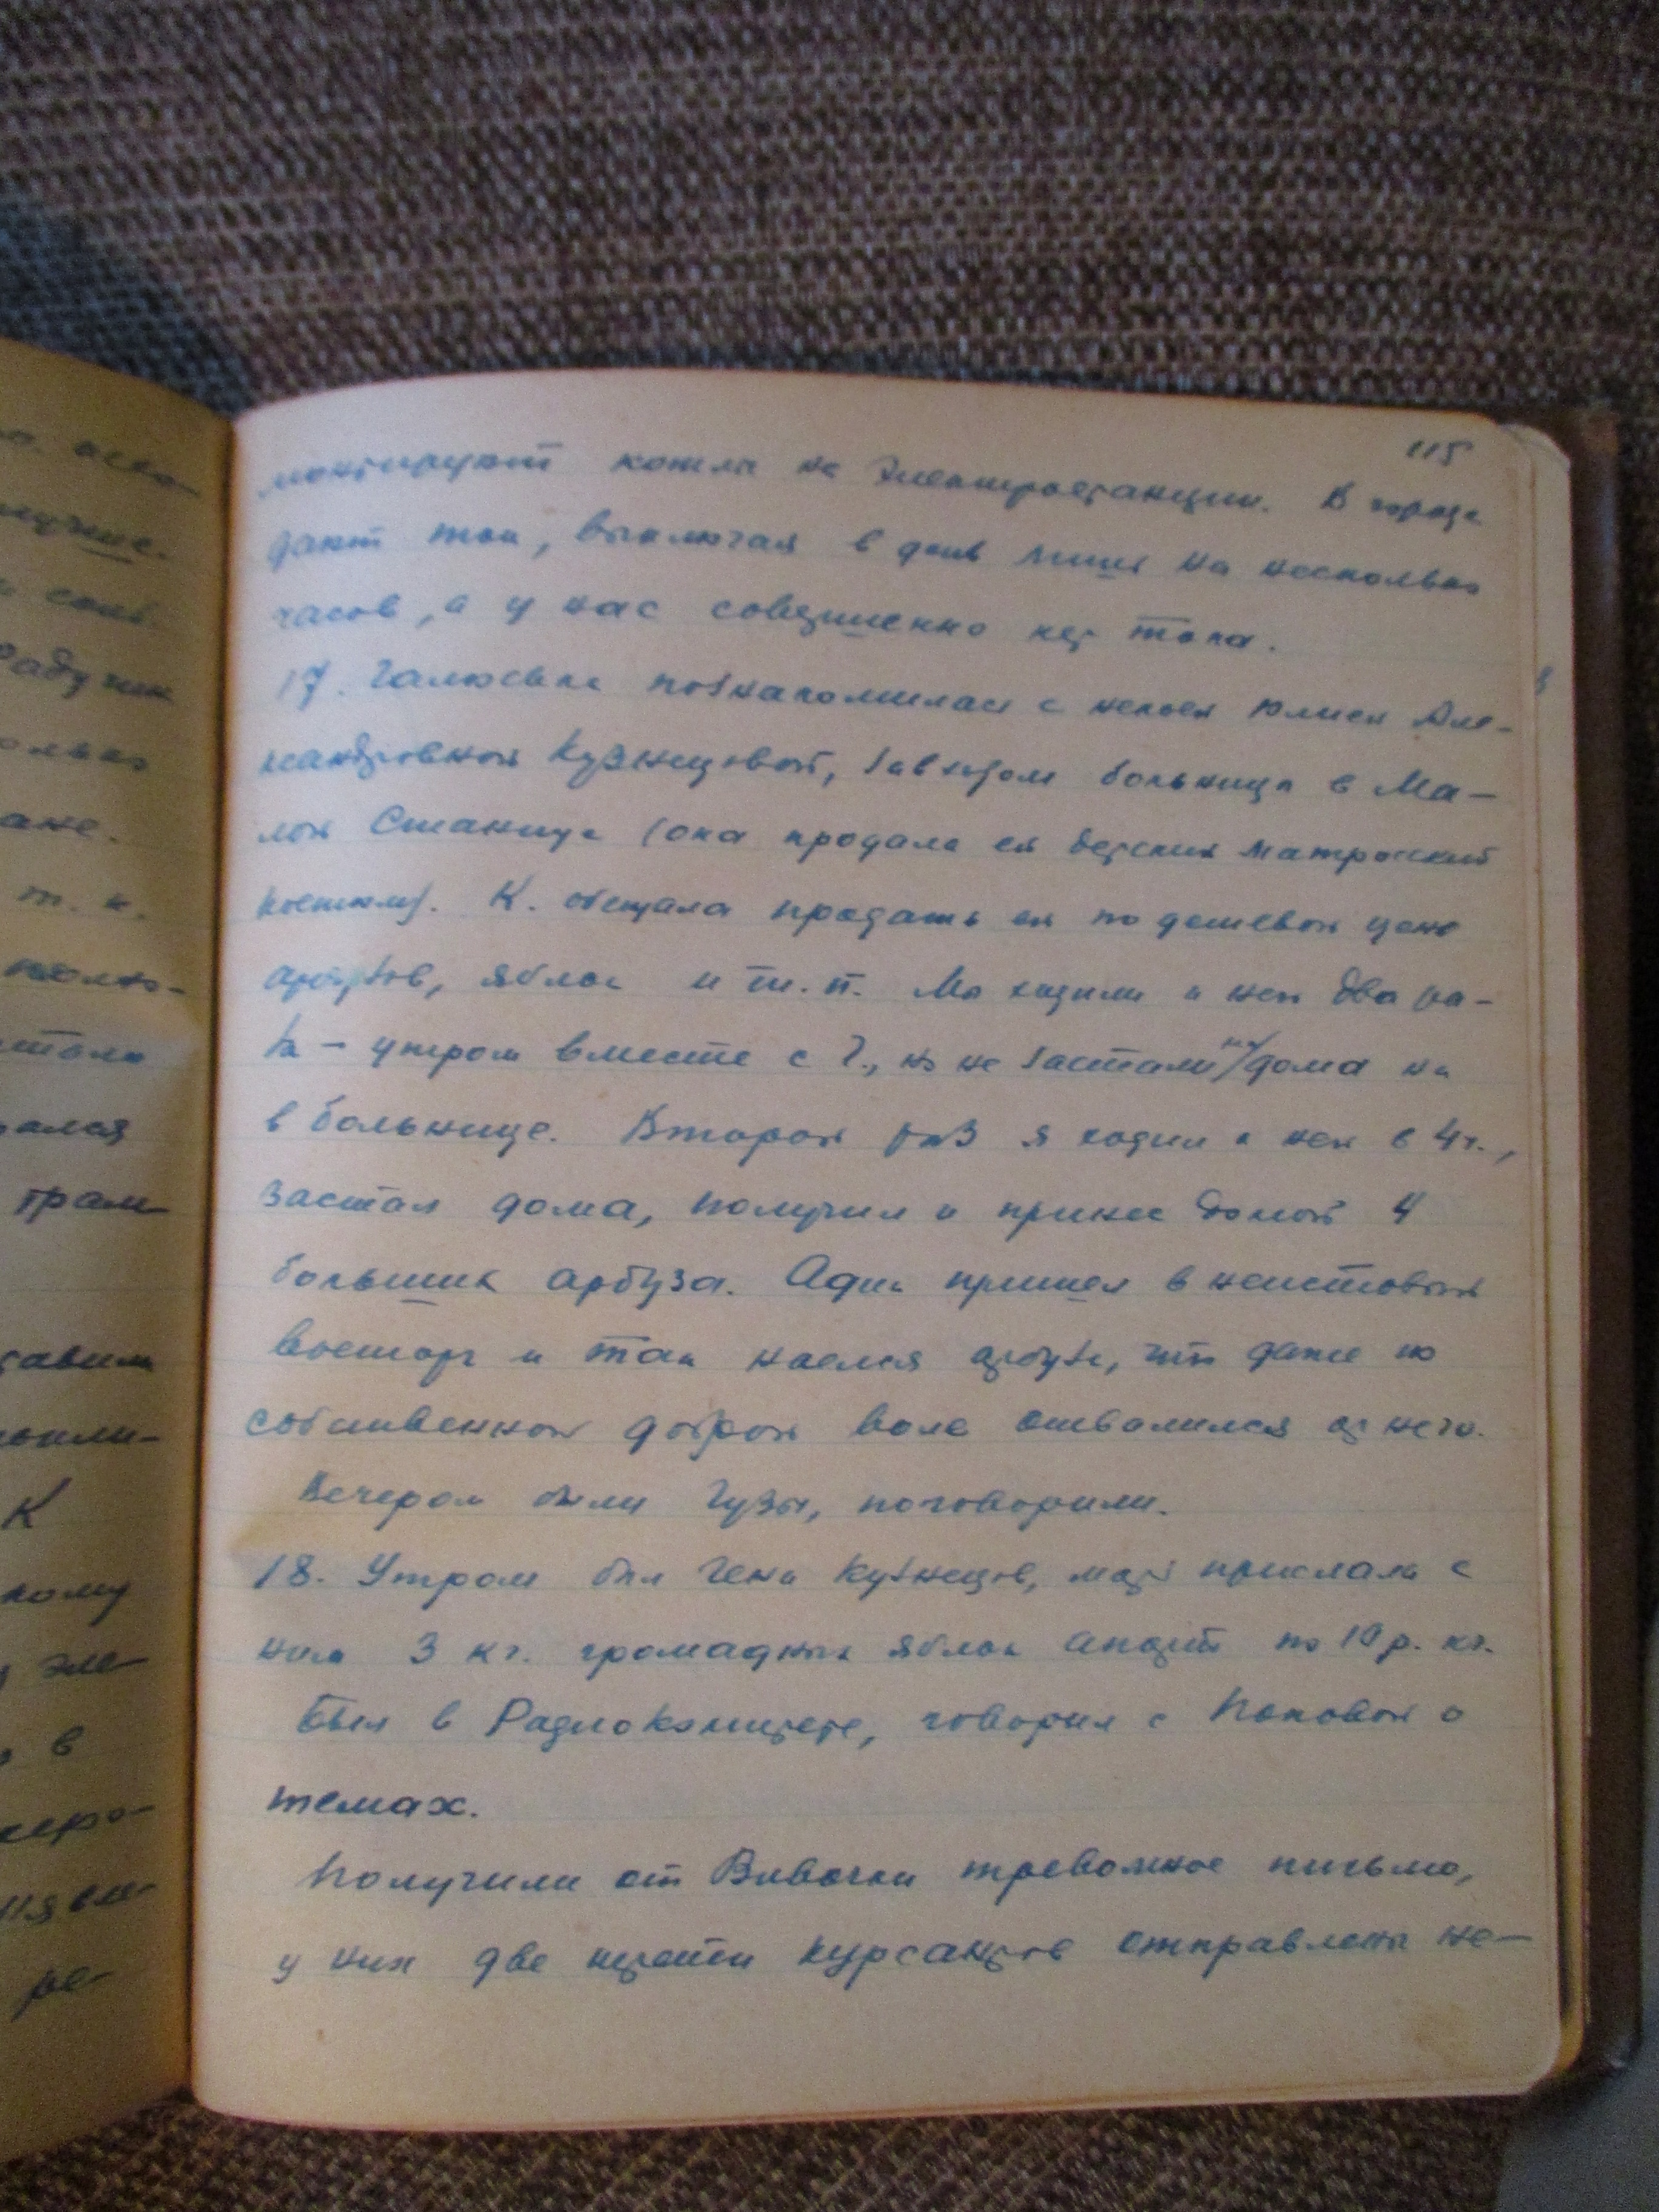 115
монтируют котлы на электростанции. В городе
дают ток, выключая в день лишь на несколько
часов, а у нас совершенно нет тока.
17. Галюська познакомилась с некоей Юлией Але-
ксандровной Кузнецовой, завхозом больницы в Ма-
лой Станице (она продала ей детский матросский
костюм). К. обещала продать ей по дешевой цене
арбузов, яблок и т.п. Мы ходили к ней два ра-
за – утром вместе с Г., но не застали ни дома ни
в больнице. Второй раз я ходил к ней в 4 ч.,
застал дома, получил и принес домой 4
больших арбуза. Адик пришел в неистовый
восторг и так наелся арбуза, что даже по
собственной доброй воле отвалился от него.
Вечером были Гузы, поговорили.
18. Утром был Гена Кузнецов, мать прислала с
ним 3 кг. громадных яблок апорт по 10 р. кг.
Был в Радиокомитете, говорил с Поповой о
темах.
Получили от Вивочки тревожное письмо,
у них две трети курсантов отправлены не-